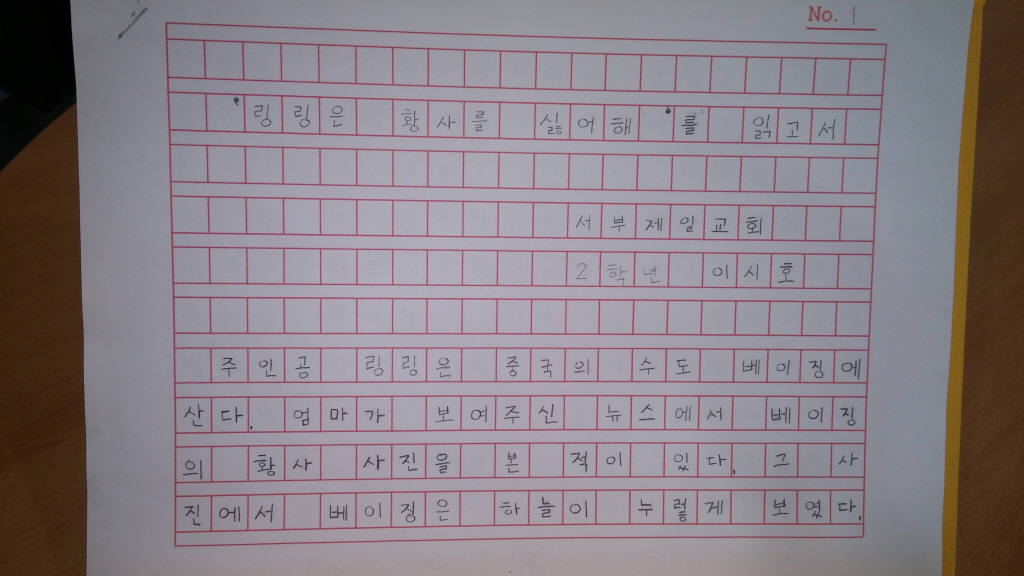 No. 1
'링링은 황사를 싫어해'를 읽고서
서부제일교회
2학년 이시호
주인공 링링은 중국의 수도 베이징에
산다. 엄마가 보여주신 뉴스에서 베이징
의 황사 사진을 본 적이 있다. 그 사
진에서 베이징은 하늘이 누렇게 보였다.